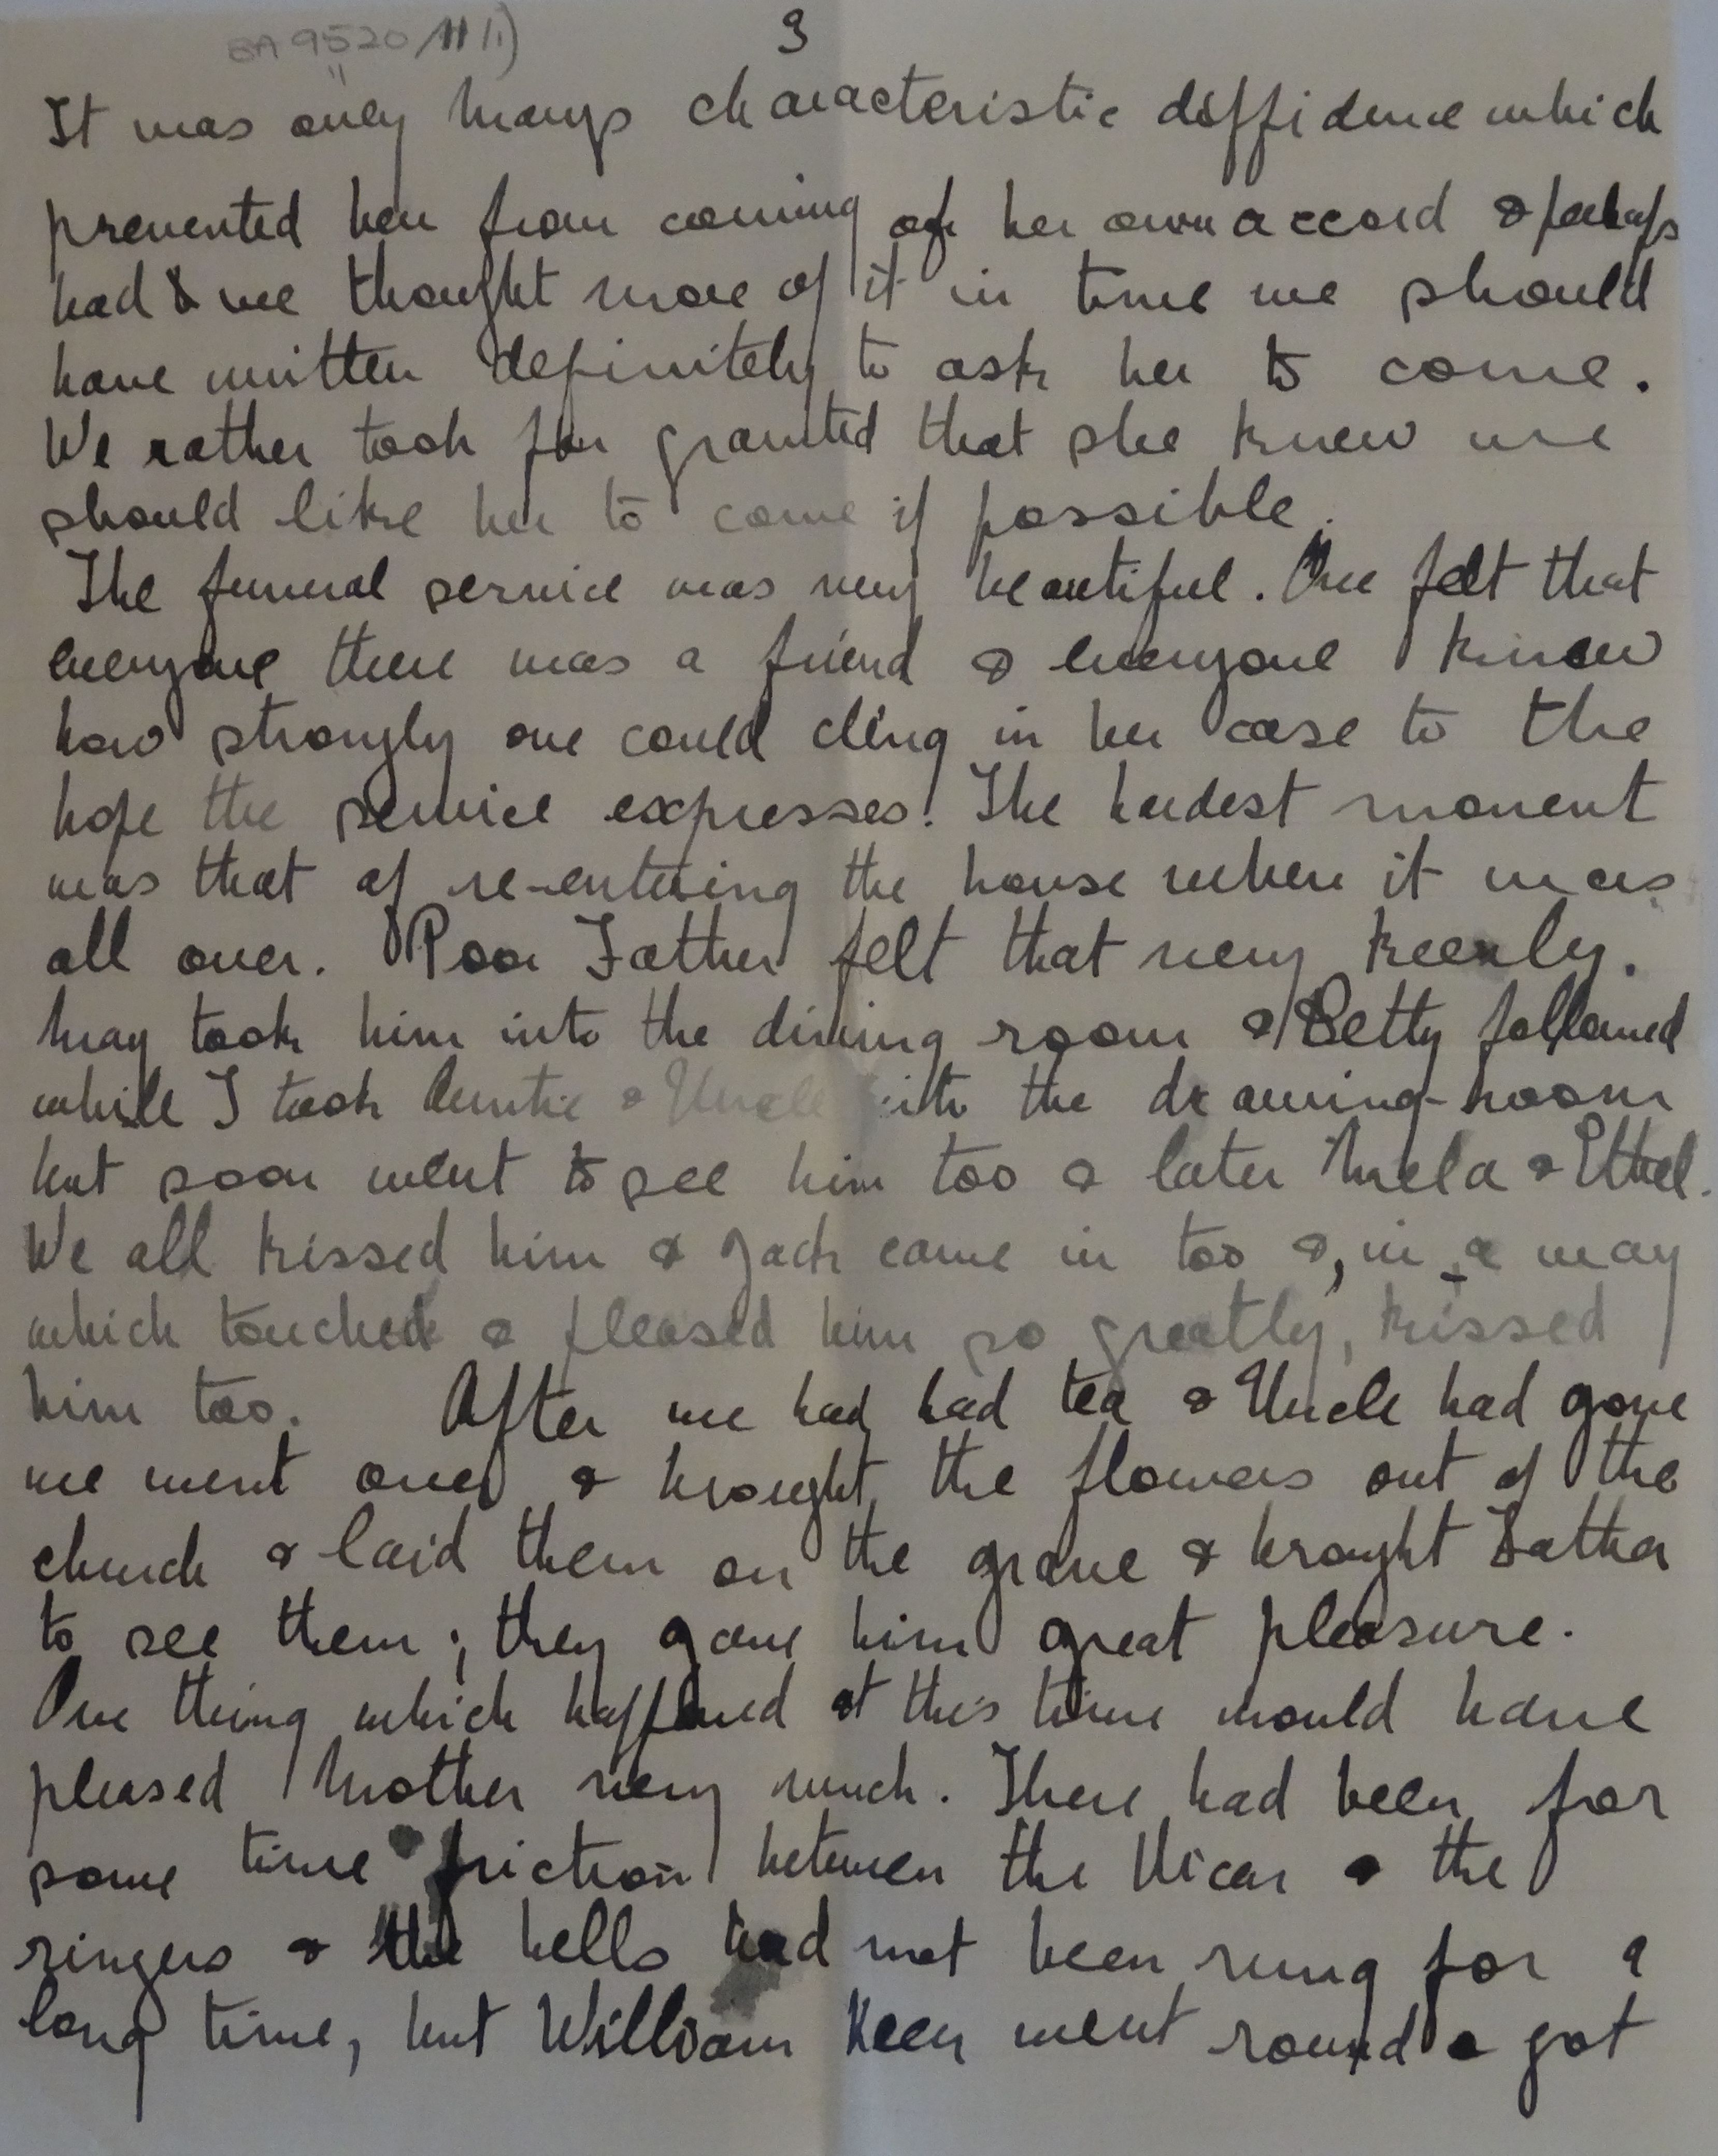 BA 9520/11(1)
3
It was only Marys characteristic diffidence which
prevented her from coming of her own accord & perhaps
had we thought more of it in time we should
have written definitely to ask her to come.
We rather took for granted that she knew we
should like her to come if possible.
The funeral service was very beautiful. One felt that
everyone there was a friend & everyone knew
how strongly one could cling in her case to the
hope the service expresses. The hardest moment
was that of re-entering the house when it was
all over. Poor Father felt that very keenly.
May took him into the dining room & Betty followed
while I took Auntie & Uncle into the drawing-room
but soon went to see him too & later Mela & Ethel.
We all kissed him & Jack came in too &, in a way
which touched & pleased him so greatly, kissed
him too. After we had had tea & Uncle had gone
we went over & brought the flowers out of the
church & laid them on the grave & brought Father
to see them; they gave him great pleasure.
One thing which happened at this time would have
pleased Mother very much. There had been for
some time friction between the Vicar & the
ringers & the bells had not been rung for a
long time, but William Keen went round & got